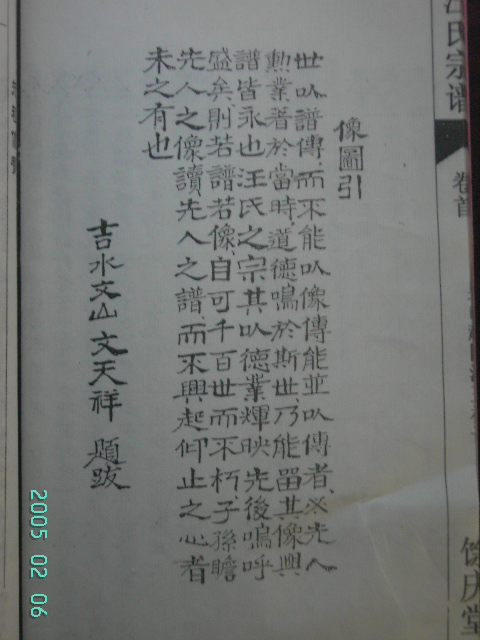 汪氏宗谱
卷首
馀庆堂
像圖引
世以譜傳而不能以像傳能並以傳者必先人
勲業著於當時道德鳴於斯世乃能留其像與
譜皆永也汪氏之宗其以德業輝映先後嗚呼
盛矣則若譜若像自可千百世而不朽子孫瞻
先人之像讀先人之譜而不興起仰止之心者
未之有也
吉水文山文天祥題跋
2005 02 06